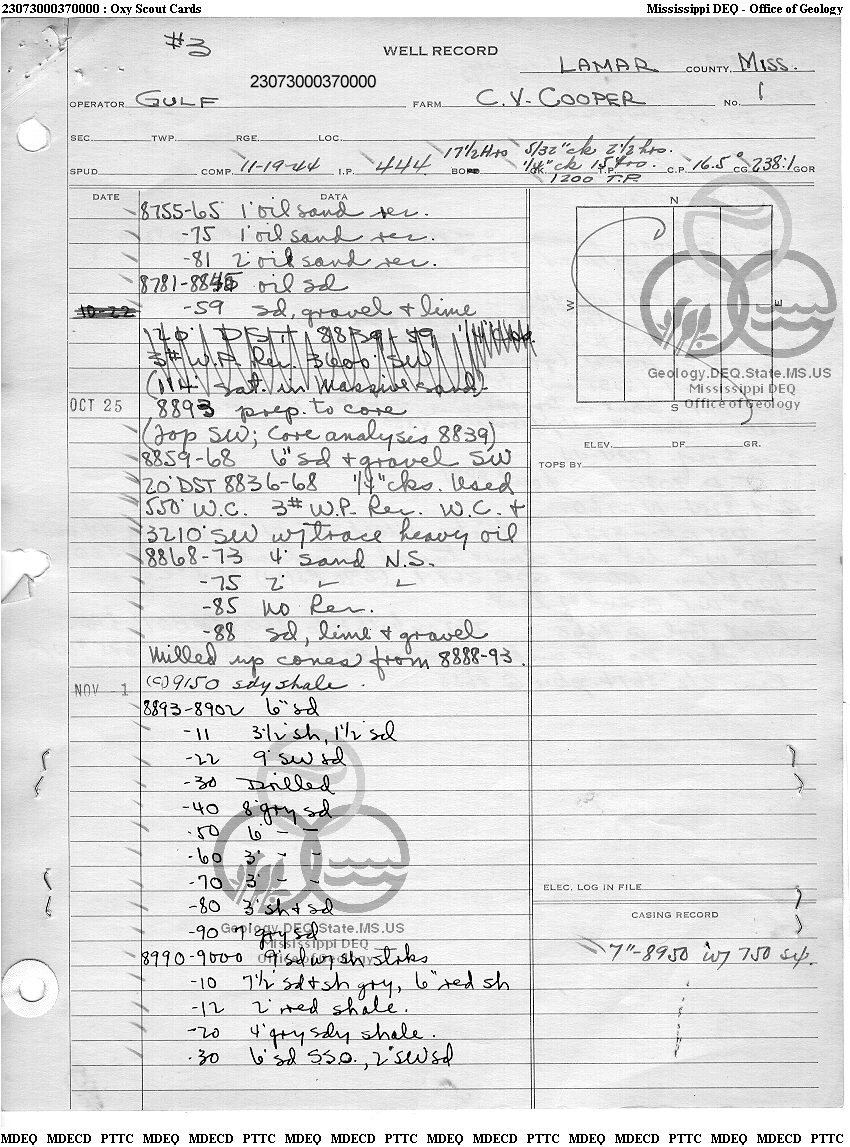 23073000370000 : Oxy Scout Cards
Mississippi DEQ - Office of Geology
#3
WELL RECORD
23073000370000
LAMAR COUNTY, MISS.
OPERATOR GULF FARM C.V. COOPER No. 1
SEC. TWP. RGE. LOC.
17 1/2 Hrs 5/32" ck 2 1/2 hrs.
SPUD COMP. 11-19-44 I.P. 444 BO CK. 1/4" ck 15 hrs. T.P. C.P. 16.5° CG. 238:1 GOR
1200 T.P.
DATE DATA
8755-65 1' oil sand rec.
-75 1' oil sand rec.
-81 2' oil sand rec.
8781-8845 oil sd
10-22 -59 sd, gravel & lime
20' DST 8839-59 1/4"
3# W.P. Rec. 3600' SW
(114' sat. in massive sand)
OCT 25 8893 prep. to core
(Top SW; core analysis 8839)
8859-68 6" sd & gravel SW
20' DST 8836-68 1/4" cks. Used
550' W.C. 3# W.P. Rec. W.C. &
3210' SW w/trace heavy oil
8868-73 4' sand N.S.
-75 2' " "
-85 No Rec.
-88 sd, lime & gravel
Milled up cones from 8888-93.
NOV -1 (c) 9150 sdy shale.
8893-8902 6" sd
-11 3 1/2' sh, 1 1/2' sd
-22 9' SW sd
-30 Drilled
-40 8' gry sd
-50 6' - -
-60 3' - -
-70 3' - -
-80 3' sh & sd
-90 7' gry sd
8990-9000 9' sd w/ sh strks
-10 7 1/2' sd & sh gry, 6" red sh
-12 2' red shale.
-20 4' gry sdy shale.
-30 6' sd S.S.O., 2' SW sd
N
W
E
S
Geology.DEQ.State.MS.US
Mississippi DEQ
Office of Geology
ELEV. DF. GR.
TOPS BY
ELEC. LOG IN FILE
CASING RECORD
7"-8950 w/ 750 sx.
Geology.DEQ.State.MS.US
Mississippi DEQ
Office of Geology
MDEQ MDECD PTTC MDEQ MDECD PTTC MDEQ MDECD PTTC MDEQ MDECD PTTC MDEQ MDECD PTTC MDEQ MDECD PTTC